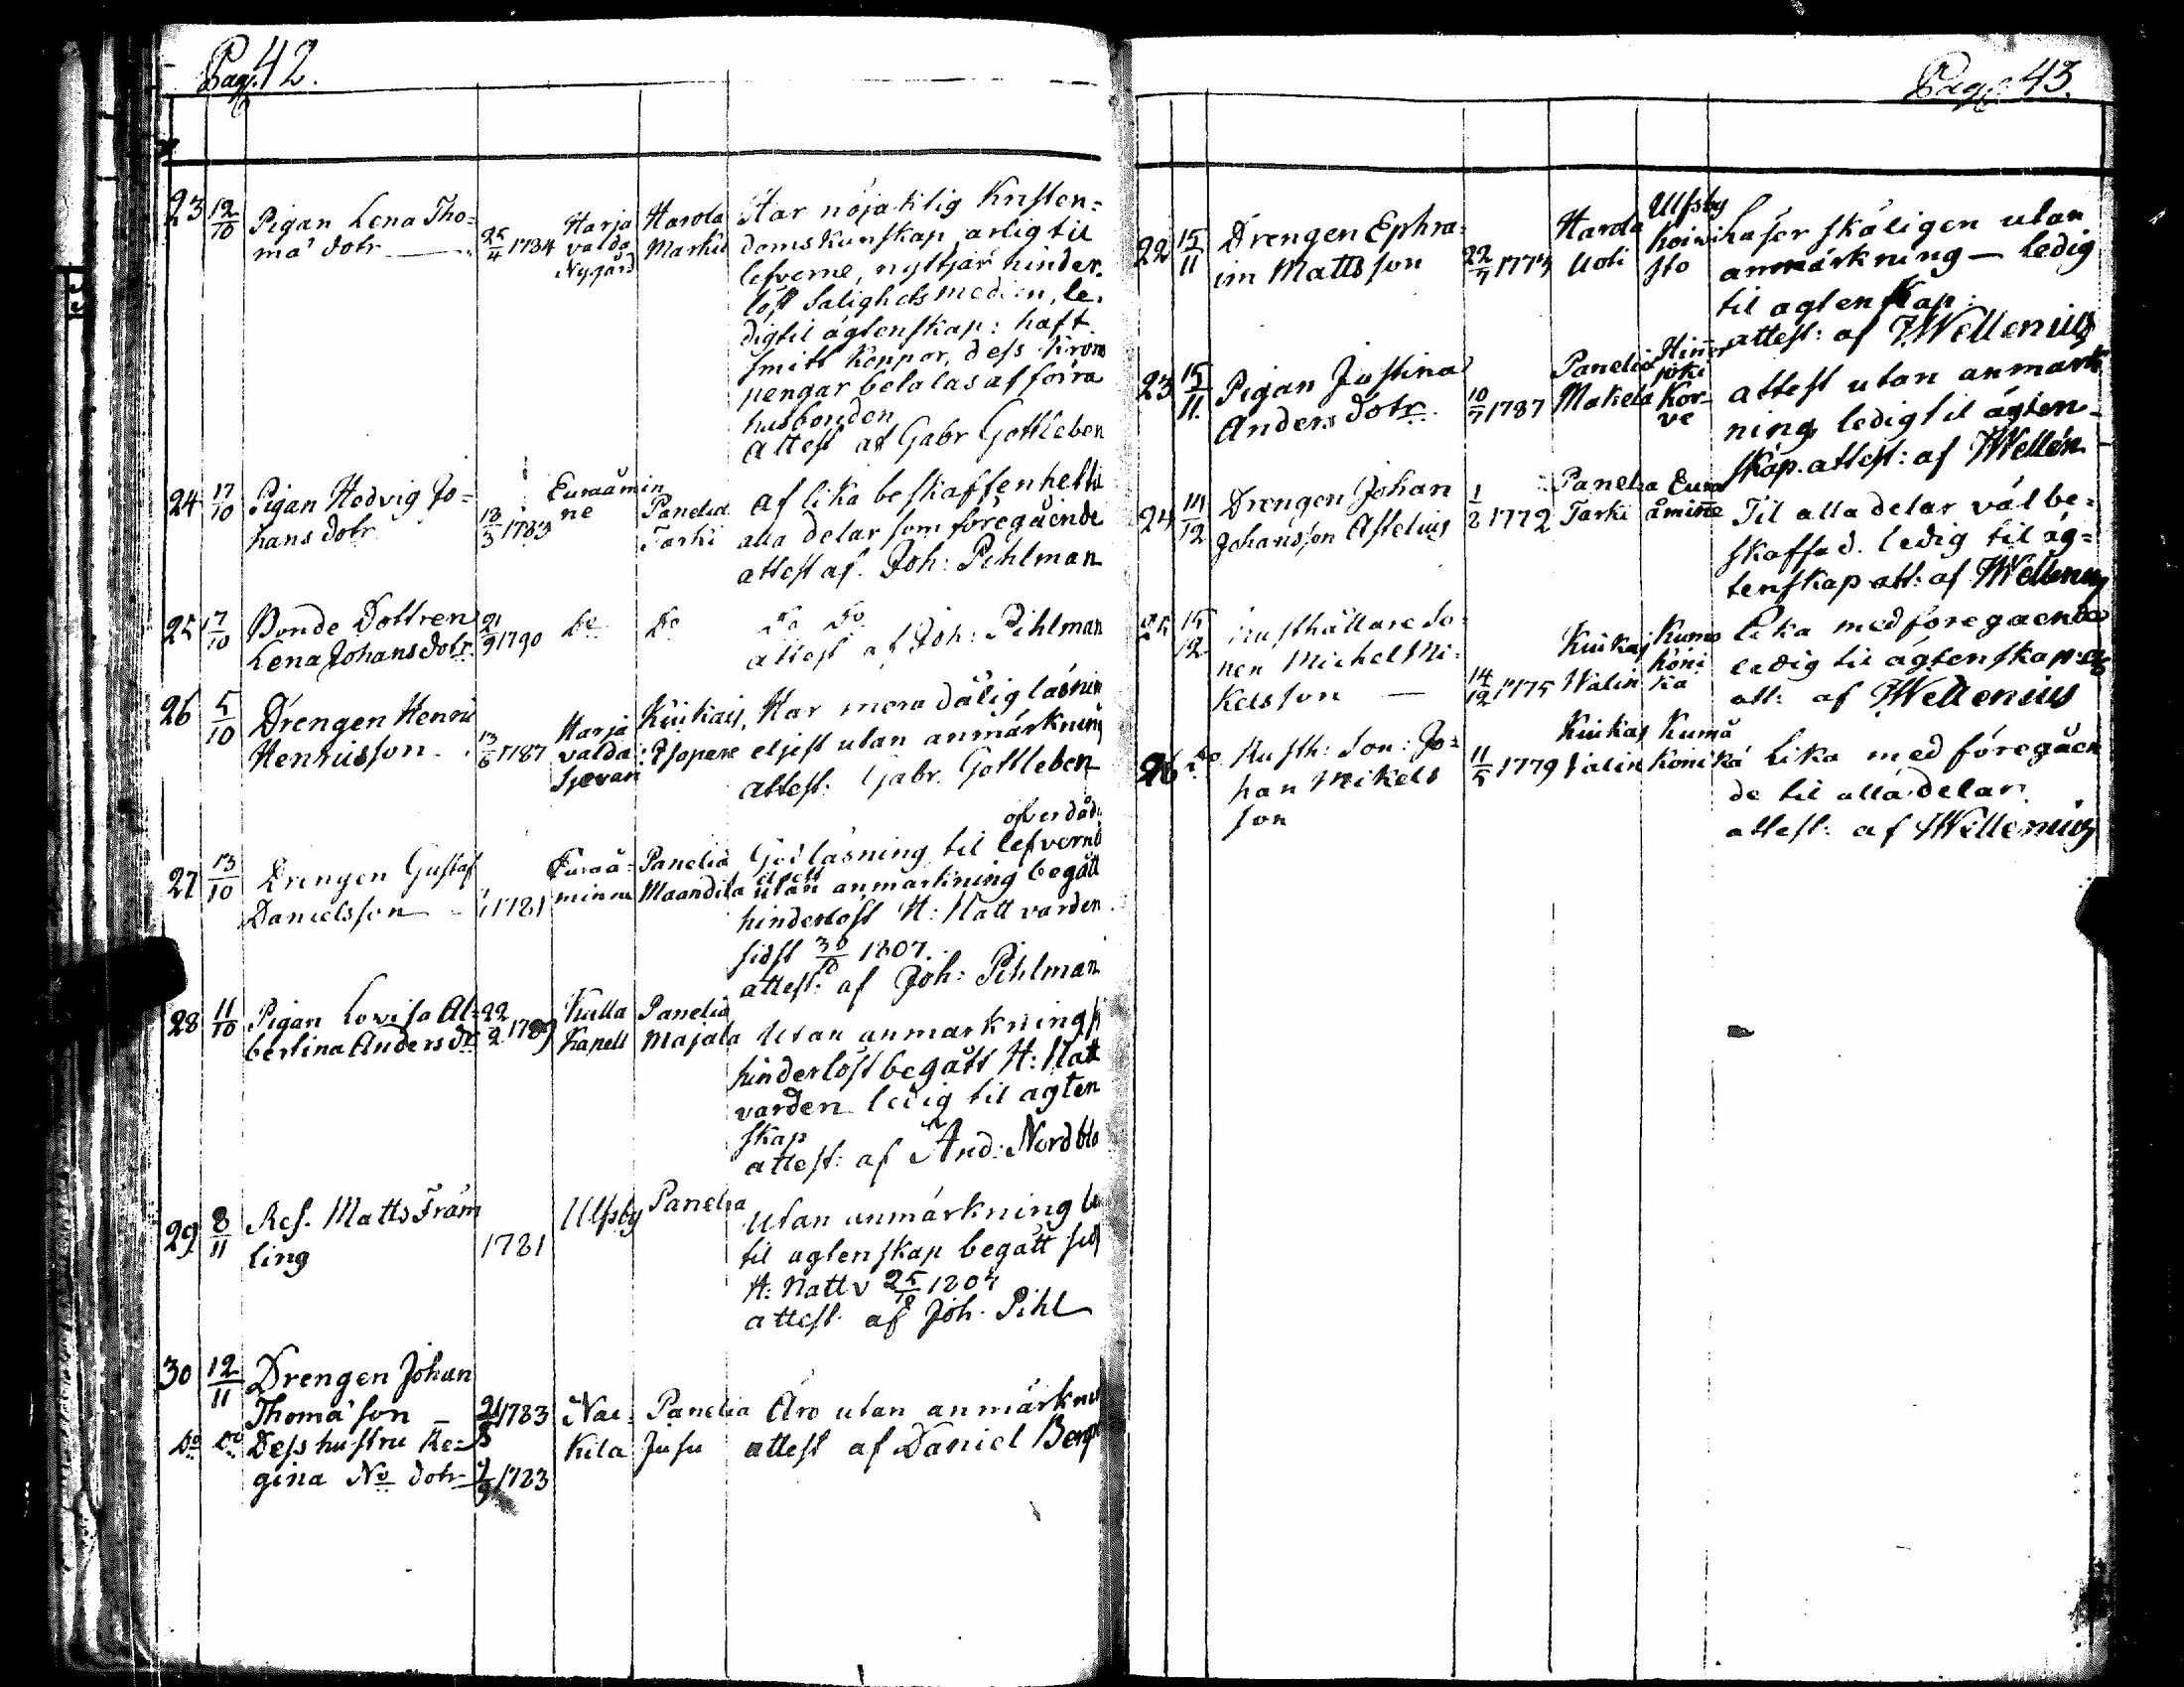 Pag. 42.
23 12/10 Pigan Lena Tho=
ma dotr 25/4 1784 Harja
valda
Nygård Harola
Markil Har nöjaktilig Kristen=
doms kunskap ärlig til
lefverne, nyttjar hinder=
löst Salighets medlen, le=
dig til ägtenskap: haft
smitt koppor, dess Krono
pengar betalas af förra
husbonden
Attest af Gabr Gottleben
24 17/10 Pigan Hedvig Jo=
hans dotr 18/3 1783 Euraåmin
ne Panelia
Tarki af lika beskaffenhet til
alla delar som föregående
attest af. Joh: Pihlman
25 17/10 Bonde Dottren
Lena Johans dotr 21/9 1790 Do Do Do Do
attest af Joh: Pihlman
26 5/10 Drengen Henric
Henricsson 13/6 1787 Harja
valda
Sjevan Kiukais
Isopare Har mera dålig läsning
eljest utan anmärkning
attest: Gabr. Gottleben
27 13/10 Drengen Gustaf
Danielsson 1781 Euraå=
minne Panelia
Maandila ofverdåd
God läsning til lefverne
eljest
utan anmärkning begått
hinderlöst H: Nattvarden
sidst 30/10 1807.
attest: af Joh: Pihlman
28 11/10 Pigan Lovisa Al=
bertina Anders dr 22/2 1789 Kulla
Kapell Panelia
Majala Utan anmärkning
hinderlöst begått H: Natt
varden ledig til agten
skap
attest: af And: Nordblo
29 8/11 Ref. Matts Främ
ling 1781 Ulfsby Panelia
Utan anmärkning le
til agtenskap begått sid
H: Nattv 25/10 1807
attest. af Joh. Pihl
30 12/11 Drengen Johan
Thoma son 21/8 1783 Nac=
Do Do Dess hustru Re=
gina Ns dotr 9/9 1783 Kila Panelia
Jusu Äro utan anmärkn
attest af Daniel Berg
Pag. 43.
22 15/11 Drengen Ephra=
im Mattsson 22/7 1774 Harola
Uoti Ulfsby
Koivi
sto laser skäligen utan
anmärkning — ledig
til agtenskap:
attest: af JWellenius
23 15/11. Pigan Justina
Anders dotr. 10/7 1787 Panelia
Makela Hiner
joki
Kor=
ve attest utan anmärk
ning ledig til ägten=
skap. attest: af JWellén
24 14/12 Drengen Johan
Johansson Astelius 1/2 1772 Panelia
Tarki Eura
åminne Til alla delar väl be=
skaffad. ledig til äg=
tenskap att: af JWellenius
25 15/12 Rusthållare So=
nen Michel Mi=
kelsson — 14/12 1775 Kiukais
Wälin Kumo
köni
ka Lika med föregaende
ledig til ägtenskap:
att: af JWellenius
26 Do Rusth: Son: Jo=
han Mikels
son 11/5 1779 Kiukais
Välin Kumå
Könikä Lika med föregåen
de til alla delar
attest: af JWellenius